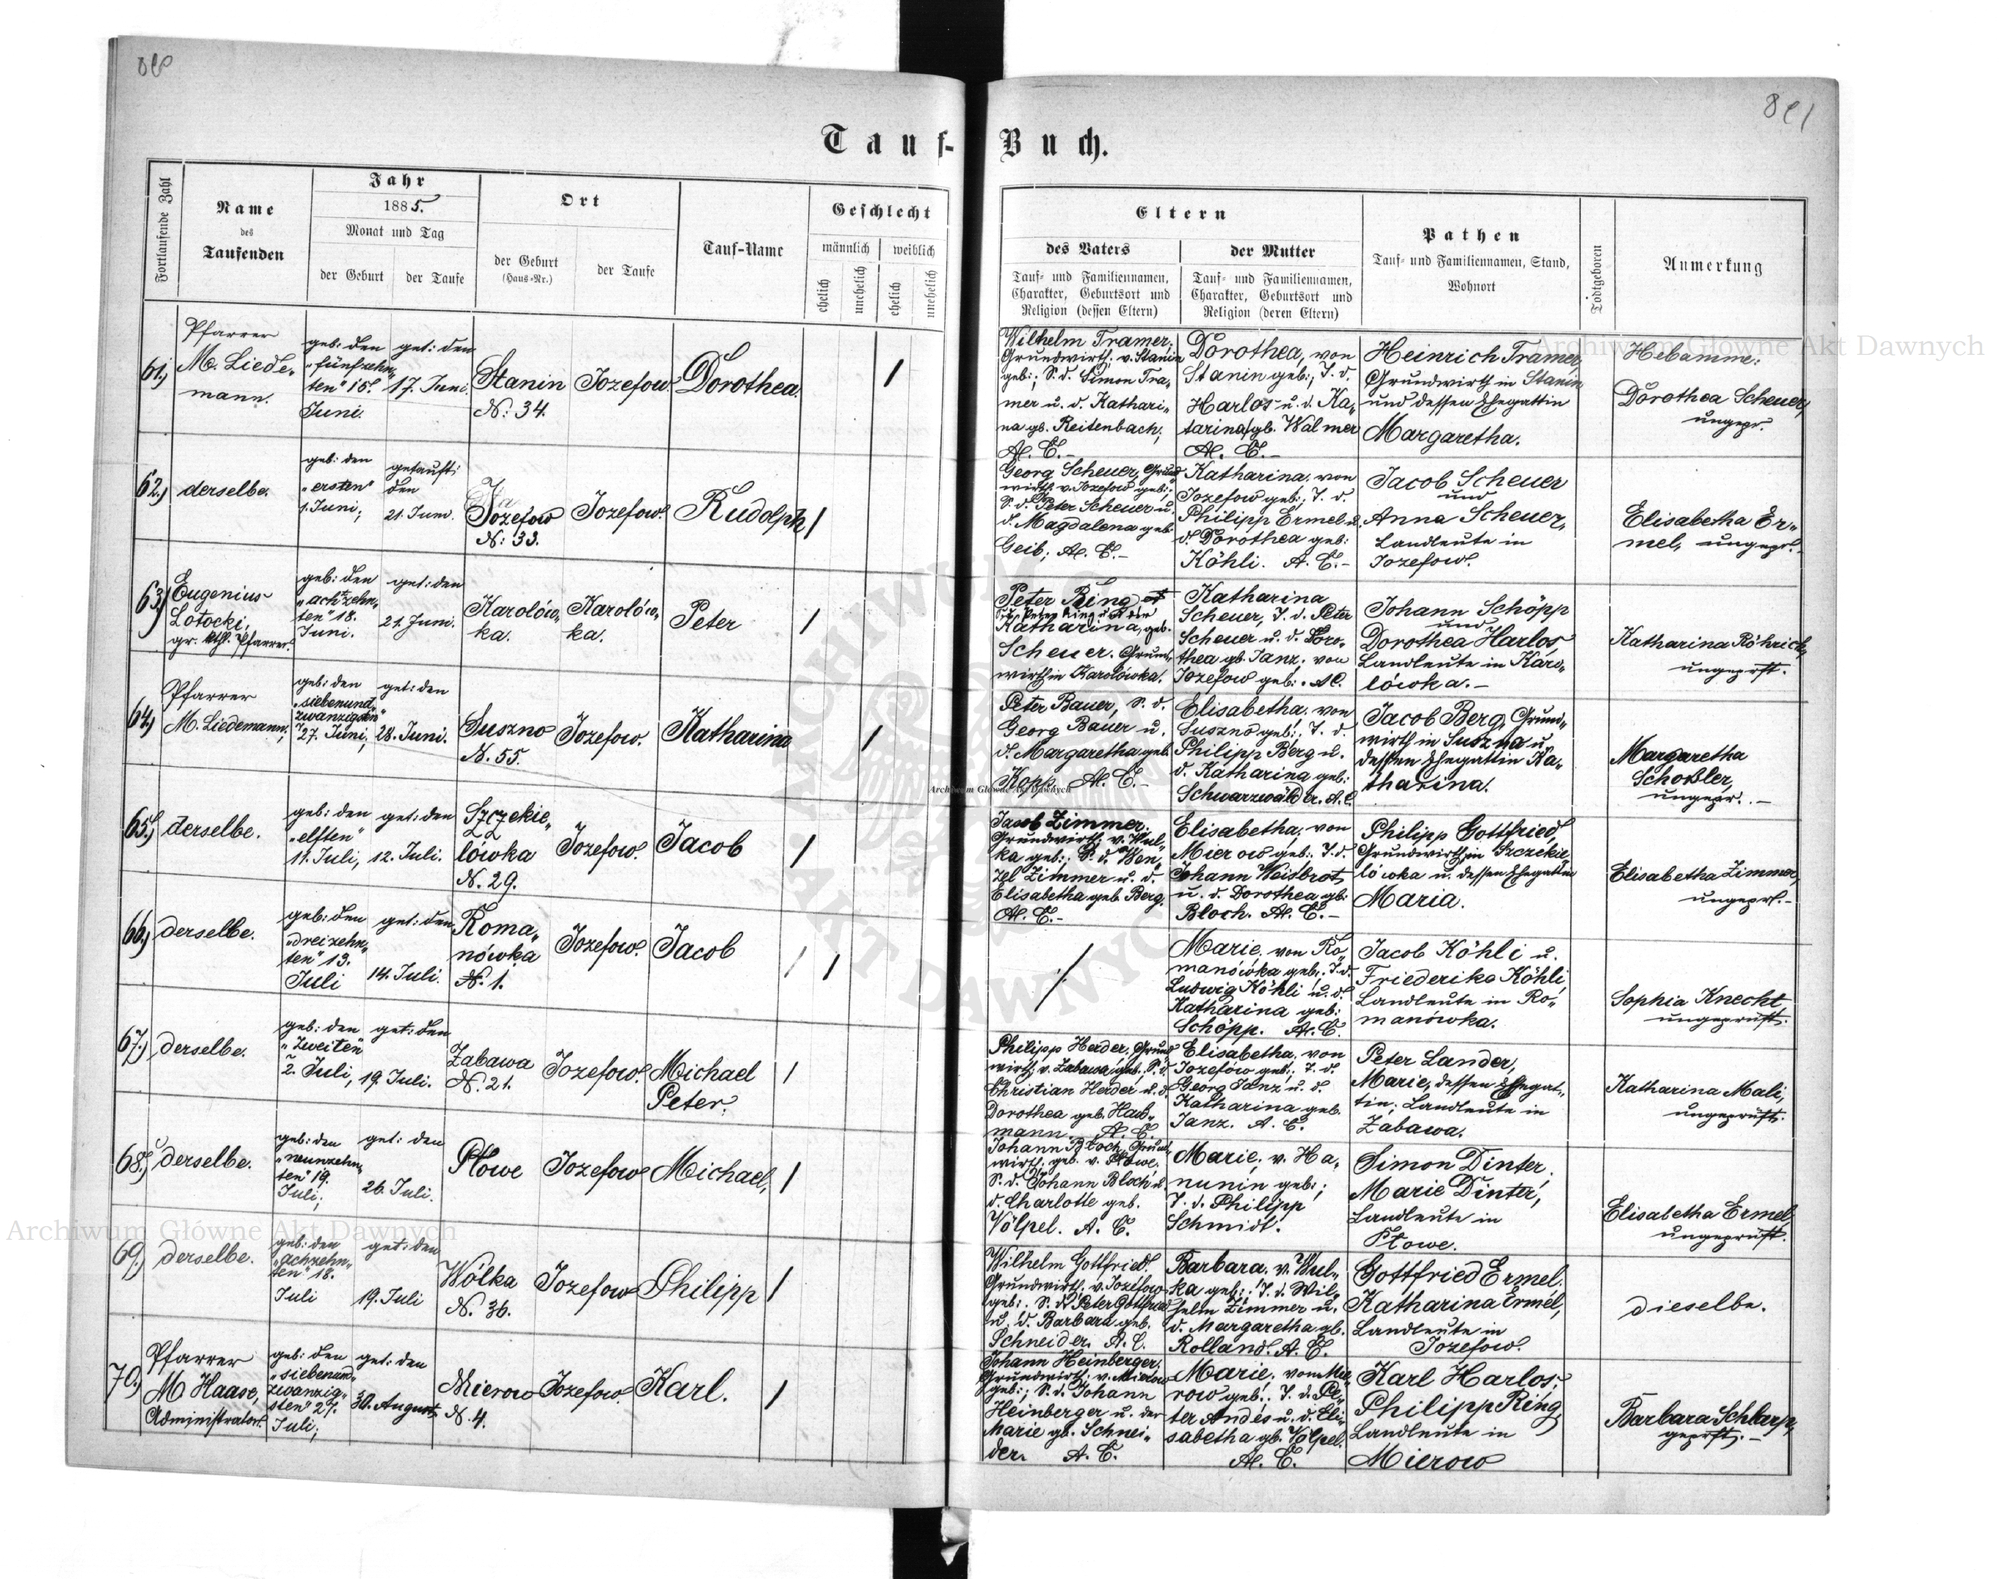 Tauf-Buch.
Fortlaufende Zahl
Name
des
Taufenden
Jahr
1885.
Monat und Tag
der Geburt
der Taufe
Ort
der Geburt
(Haus-Nr.)
der Taufe
Tauf-Name
Geschlecht
männlich
weiblich
ehelich
unehelich
ehelich
unehelich
Eltern
des Vaters
Tauf- und Familiennamen,
Charakter, Geburtsort und
Religion (dessen Eltern)
der Mutter
Tauf- und Familiennamen,
Charakter, Geburtsort und
Religion (deren Eltern)
Pathen
Tauf- und Familiennamen, Stand,
Wohnort
Todtgeboren
Anmerkung
61.)
Pfarrer
M. Liede-
mann.
geb: den
"fünfzehn-
ten" 15t.
Juni.
get: den
17. Juni.
Stanin
N: 34.
Jozefow
Dorothea.
Wilhelm Tramer,
Grundwirth. v. Stanin
geb:, S. d. Simon Tra-
mer u. d. Kathari-
na gb. Reitenbach;
A. C.-
Dorothea, von
Stanin geb:, T. d.
Harlos u. d. Ka-
tarina gb. Walmer
A. C.-
Heinrich Tramer,
Grundwirth in Stanin
und dessen Ehegattin
Margaretha.
Hebamme:
Dorothea Scheuer,
ungepr.
62.)
derselbe.
geb: den
"ersten"
1. Juni;
getauft:
den
21. Juni.
Jozefow
N: 33.
Jozefow.
Rudolph
Georg Scheuer, Grund-
wirth v. Jozefow geb:,
S. d. Peter Scheuer u.
d. Magdalena geb.
Geib; A. C.-
Katharina, von
Jozefow geb:, T. d.
Philipp Ermel u.
d. Dorothea geb:
Köhli. A. C.-
Jacob Scheuer
und
Anna Scheuer,
Landleute in
Jozefow.
Elisabetha Er-
mel, ungepr.-
63.)
Eugenius
Lotocki,
gr. kth. Pfarrer.
geb: den
"achtzehn-
ten" 18.
Juni.
get: den
21. Juni.
Karolów-
ka.
Karolów-
ka.
Peter
Peter Ring
Katharina, geb.
Scheuer. Grund-
wirth in Karolówka.
Katharina
Scheuer, T. d. Peter
Scheuer u. d. Doro-
thea gb. Janz. von
Jozefow geb:. A C.
Johann Schöpp
und
Dorothea Harlos
Landleute in Karo-
lówka.-
Katharina Röhrich,
ungeprft.
64.)
Pfarrer
M. Liedemann.,
geb: den
"siebenund-
zwanzigsten"
27. Juni,
get: den
28. Juni.
Suszno
N. 55.
Jozefow.
Katharina
Peter Bauer, S. d.
Georg Bauer u.
d. Margaretha geb.
Kopp. A. C.-
Elisabetha, von
Suszno geb:, T. d.
Philipp Berg u.
d. Katharina geb:
Schwarzwälder. A. C.
Jacob Berg, Grund-
wirth in Suszno u.
dessen Ehegattin Ka-
tharina.
Margaretha
Schossler,
ungepr.-
65.)
derselbe.
geb: den
"elften"
11. Juli,
get: den
12. Juli.
Szczekie-
lówka
N. 29.
Jozefow.
Jacob
Jacob Zimmer,
Grundwirth v. Wul-
ka geb:, S. d. Wen-
zel Zimmer u. d.
Elisabetha geb. Berg.
A. C.-
Elisabetha, von
Mierow geb:, T. d.
Johann Weisbrot
u. d. Dorothea gb:
Bloch. A. C.-
Philipp Gottfried,
Grundwirth in Szczekie-
lówka u. dessen Ehegattin
Maria.
Elisabetha Zimmer,
ungepr.-
66.)
derselbe.
geb: den
"dreizehn-
ten" 13.
Juli
get: den
14. Juli.
Roma-
nówka
N. 1.
Jozefow.
Jacob
Marie, von Ro-
manówka geb:, T. d.
Ludwig Köhli u. d.
Katharina geb:
Schöpp. A. C.
Jacob Köhli u.
Friederika Köhli,
Landleute in Ro-
manówka.
Sophia Knecht
ungeprüft.
67.)
derselbe.
geb: den
"zweiten"
2. Juli,
get: den
19. Juli.
Zabawa
N. 21.
Jozefow.
Michael
Peter.
Philipp Herder, Grund-
wirth v. Zabawa geb:, S. d.
Christian Herder u. d.
Dorothea geb. Hass-
mann. A. C.
Elisabetha, von
Jozefów geb:, T. d.
Georg Janz u. d.
Katharina geb.
Janz. A. C.
Peter Lander,
Marie, dessen Ehegat-
tin; Landleute in
Zabawa.
Katharina Mali,
ungeprüft.
68.)
derselbe.
geb: den
"neunzehn-
ten" 19.
Juli;
get: den
26. Juli.
Płowe
Jozefow
Michael,
Johann Bloch, Grund-
wirth. geb. v. Płowe.
S. d. Johann Bloch u.
d. Charlotte geb.
Völpel. A. C.
Marie, v. Ha-
nunin geb:;
T. d. Philipp
Schmidt.
Simon Dinter,
Marie Dinter,
Landleute in
Płowe.
Elisabetha Ermel
ungeprüft.
69.)
derselbe.
geb: den
"achzehn-
ten" 18.
Juli
get: den
19. Juli
Wólka
N. 36.
Jozefow
Philipp
Wilhelm Gottfried.
Grundwirth. v. Jozefow
geb:. S. d. Peter Gottfried
u. d. Barbara geb.
Schneider. A. C.
Barbara. v. Wul-
ka geb:, T. d. Wil-
helm Zimmer u.
d. Margaretha gb.
Rolland. A. C.
Gottfried Ermel.
Katharina Ermel,
Landleute in
Jozefow.
dieselbe.
70.)
Pfarrer
M Haase,
Administrator.
geb: den
"siebenund-
zwanzig-
sten" 27.
Juli;
get: den
30. August.
Mierow
N. 4.
Jozefow.
Karl.
Johann Heinberger,
Grundwirth. v. Mierow
geb:; S. d. Johann
Heinberger u. der
Marie gb. Schnei-
der. A. C.
Marie, vom Mie-
row geb:, T. d. Pe-
ter Andes u. d. Eli-
sabetha gb. Völpel.
A. C.
Karl Harlos;
Philipp Ring
Landleute in
Mierow
Barbara Schlarp,
geprft.-
Archiwum Główne Akt Dawnych
Archiwum Główne Akt Dawnych
Archiwum Główne Akt Dawnych